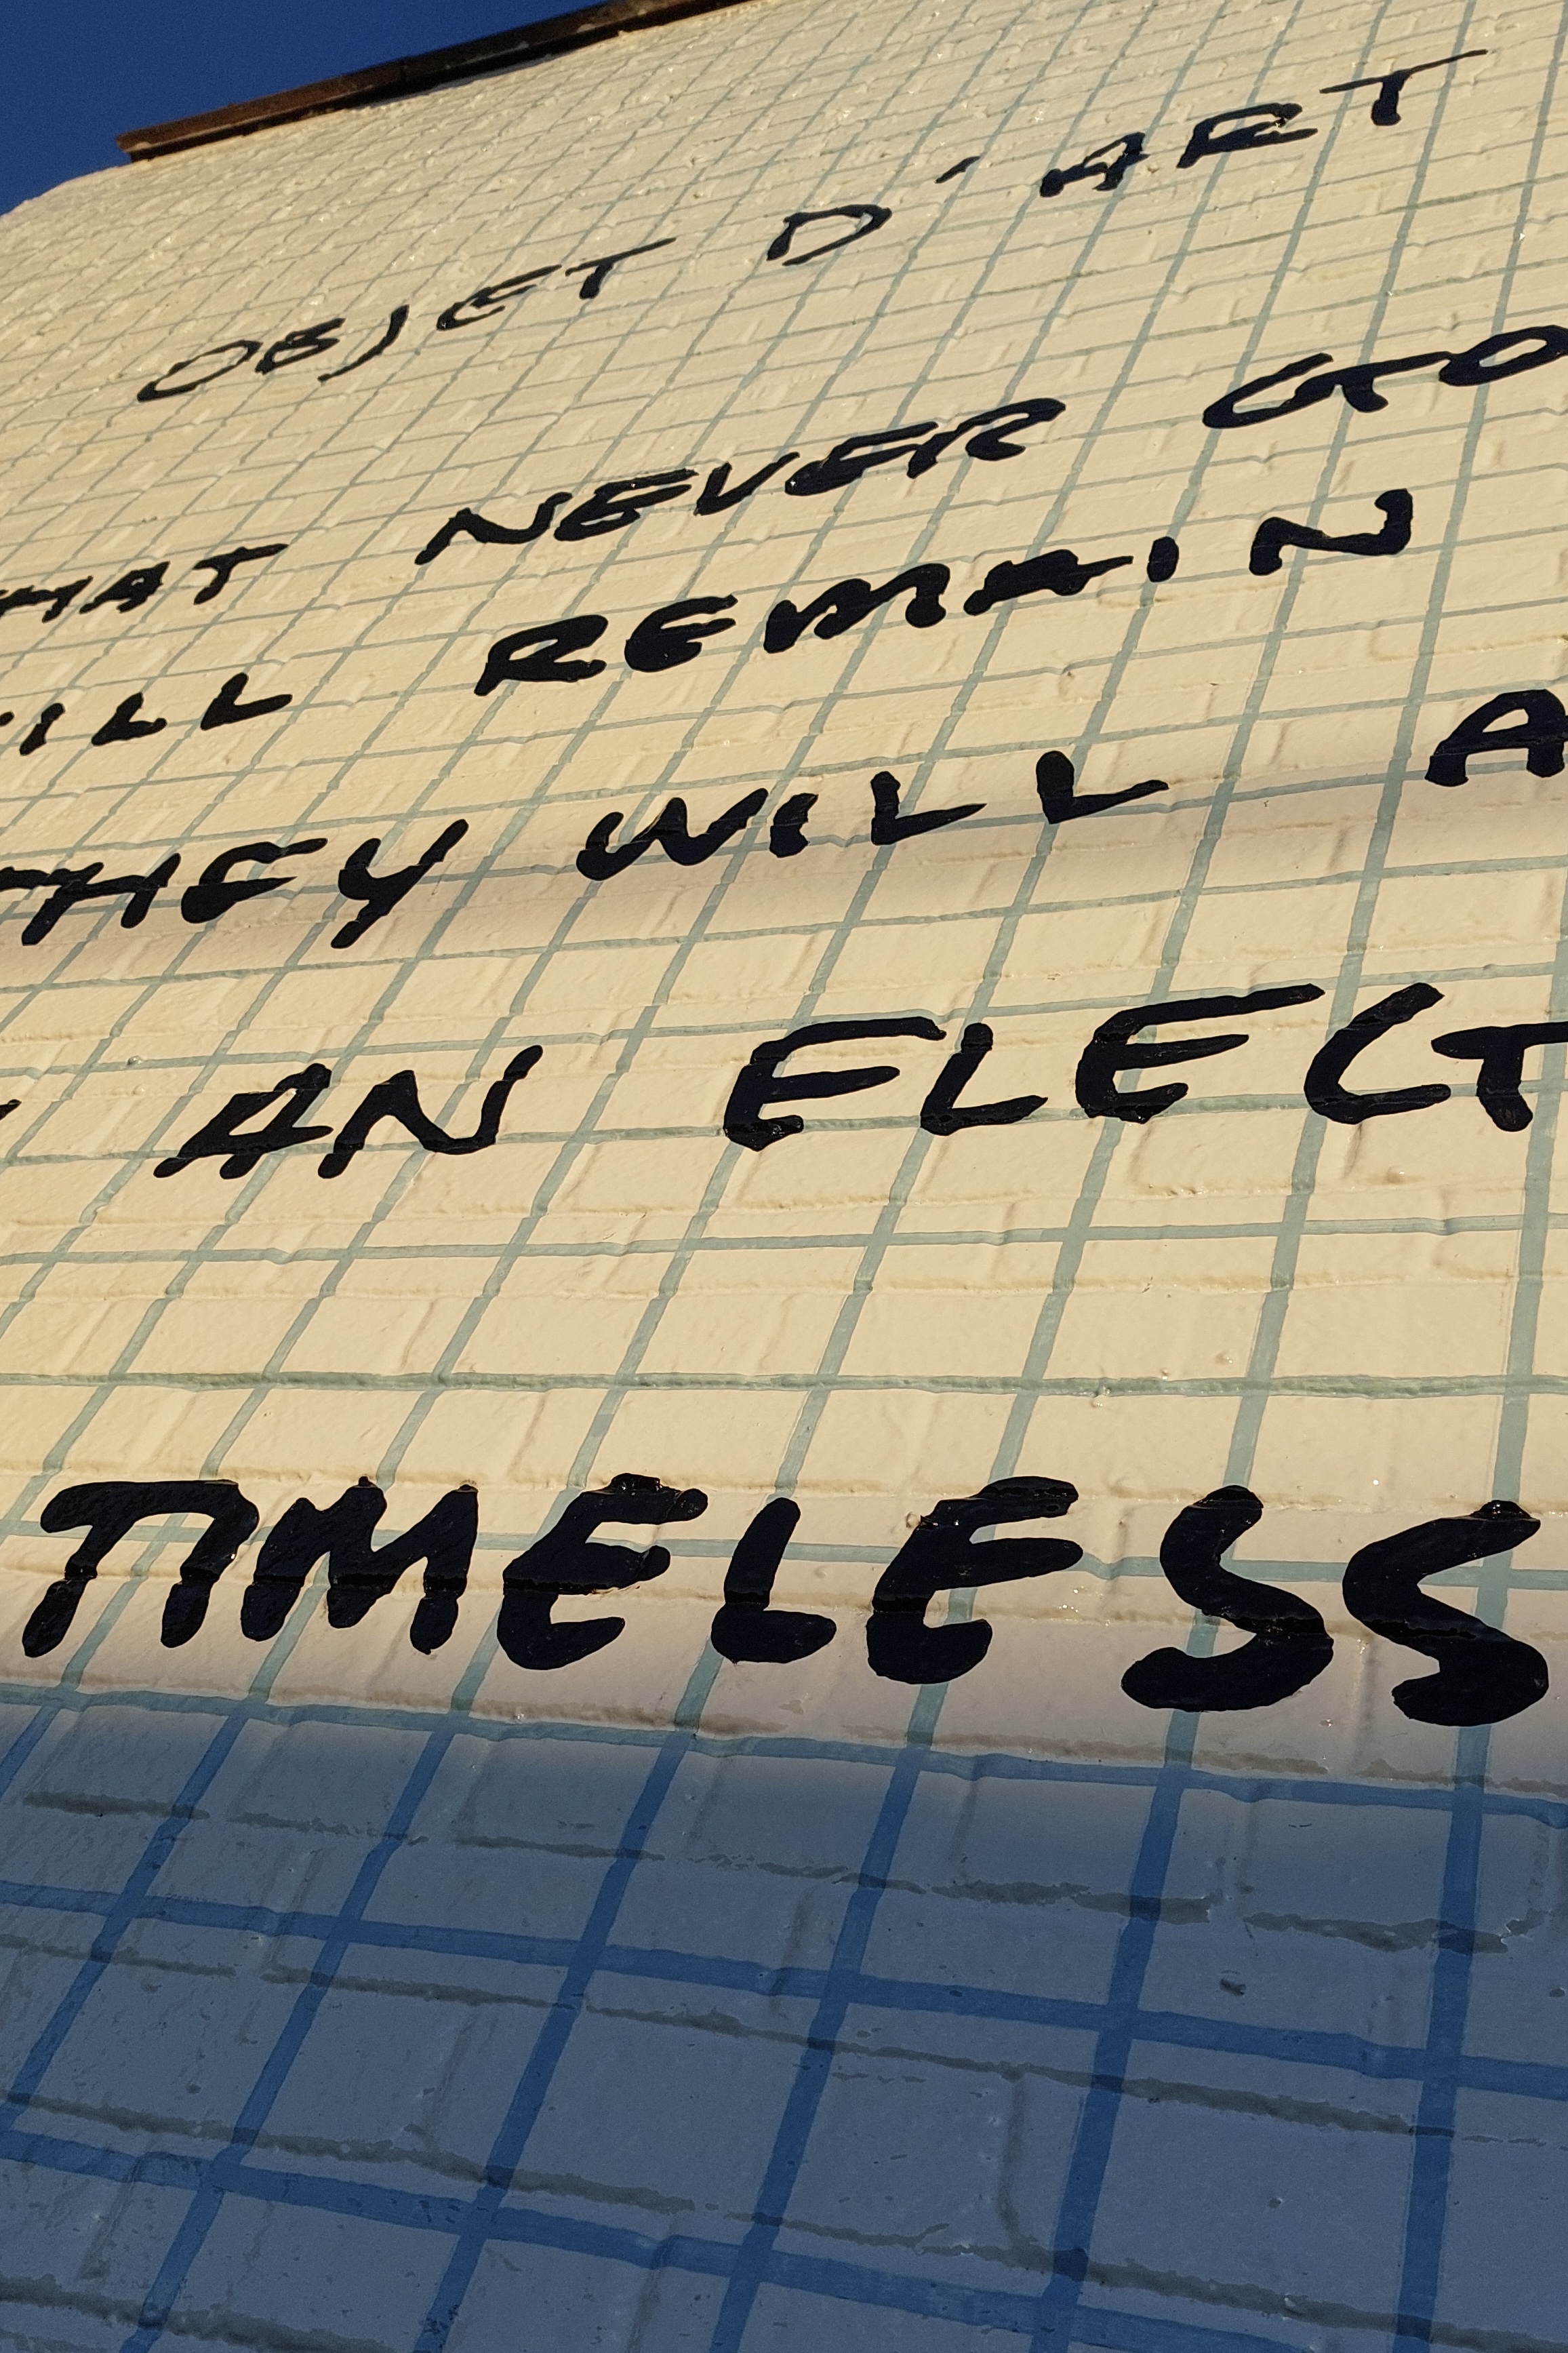 OBJET D'ART
HAT NEVER GO
ILL REMAIN
THEY WILL A
AN ELECT
TIMELESS